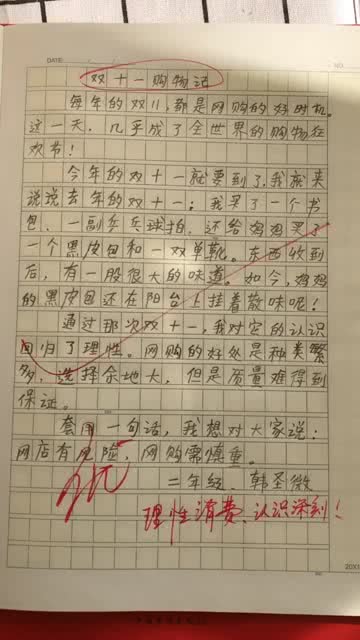 DATE:
双十一购物记
每年的双11,都是网购的好时机。
这一天,几乎成了全世界的购物狂
欢节!
今年的双十一就要到了,我就来
说说去年的双十一:我买了一个书
包、一副乒乓球拍,还给妈妈买了
一个黑皮包和一双单靴。东西收到
后,有一股很大的味道。如今,妈妈
的黑皮包还在阳台上挂着散味呢!
通过那次双十一,我对它的认识
回归了理性。网购的好处是种类繁
多,选择余地大,但是质量难得到
保证。
套用一句话,我想对大家说:
网店有风险,网购需慎重。
二年级、韩圣微
优
理性消费、认识深刻!